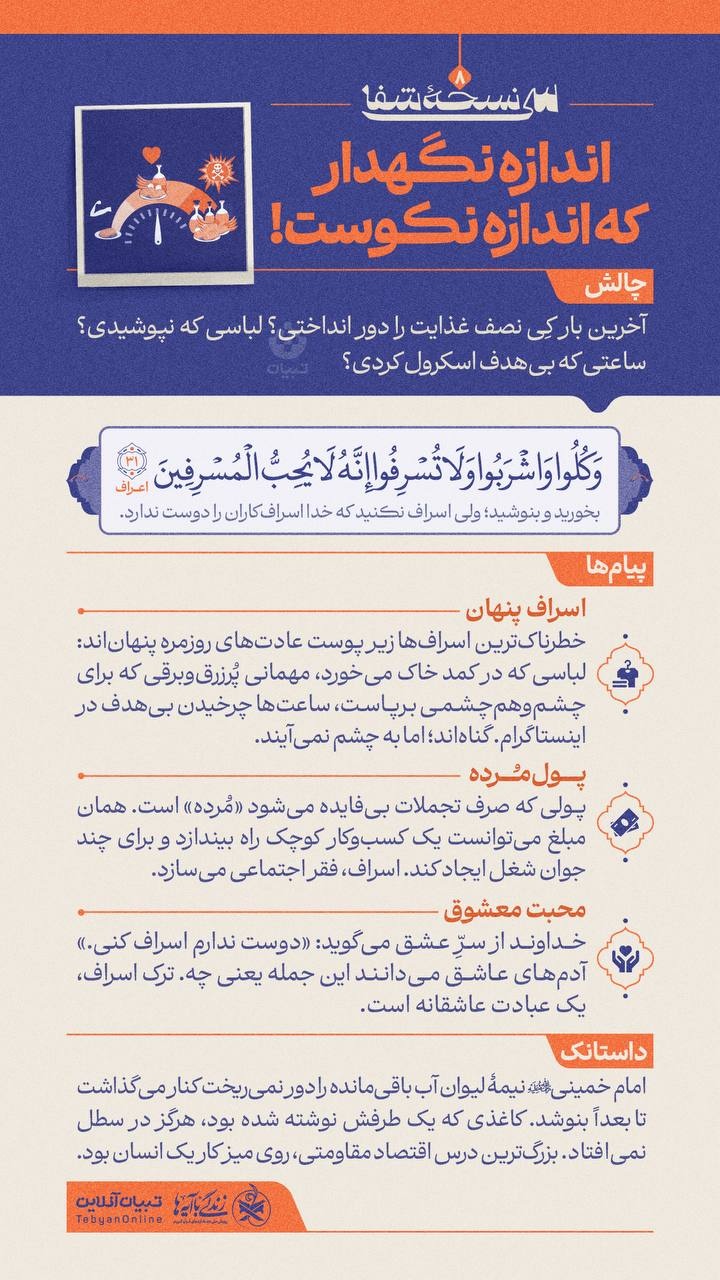 ۸
سی نسخهٔ شفا
اندازه نگهدار
که اندازه نکوست!
چالش
آخرین بار کِی نصف غذایت را دور انداختی؟ لباسی که نپوشیدی؟
ساعتی که بی‌هدف اسکرول کردی؟
تبیان
وَكُلُوا وَاشْرَبُوا وَلَا تُسْرِفُوا إِنَّهُ لَا يُحِبُّ الْمُسْرِفِينَ ۳۱ اعراف
بخورید و بنوشید؛ ولی اسراف نکنید که خدا اسراف‌کاران را دوست ندارد.
پیام‌ها
اسراف پنهان
خطرناک‌ترین اسراف‌ها زیر پوست عادت‌های روزمره پنهان‌اند:
لباسی که در کمد خاک می‌خورد، مهمانی پُرزرق‌وبرقی که برای
چشم‌وهم‌چشمی برپاست، ساعت‌ها چرخیدن بی‌هدف در
اینستاگرام. گناه‌اند؛ اما به چشم نمی‌آیند.
پول مُرده
پولی که صرف تجملات بی‌فایده می‌شود «مُرده» است. همان
مبلغ می‌توانست یک کسب‌وکار کوچک راه بیندازد و برای چند
جوان شغل ایجاد کند. اسراف، فقر اجتماعی می‌سازد.
محبت معشوق
خداوند از سرِّ عشق می‌گوید: «دوست ندارم اسراف کنی.»
آدم‌های عاشق می‌دانند این جمله یعنی چه. ترک اسراف،
یک عبادت عاشقانه است.
داستانک
امام خمینی نیمهٔ لیوان آب باقی‌مانده را دور نمی‌ریخت کنار می‌گذاشت
تا بعداً بنوشد. کاغذی که یک طرفش نوشته شده بود، هرگز در سطل
نمی‌افتاد. بزرگ‌ترین درس اقتصاد مقاومتی، روی میز کار یک انسان بود.
زندگی با آیه‌ها
تبیان آنلاین
TebyanOnline